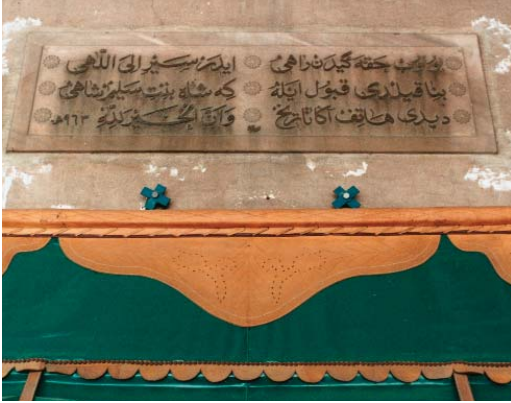 بولوب حقه گیدن راهی ایدر سیر الی اللهی
بنا قیلدی قبول ایله که شاه بنت سلیم شاهی
دیدی هاتف اکا تاریخ وان الخیر لله ٩٦٣هـ